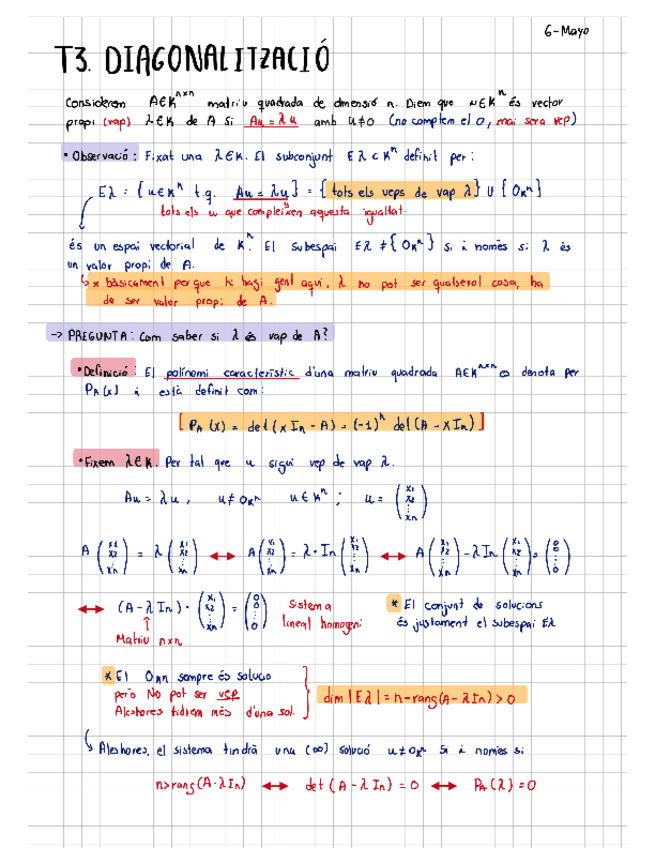 6-Mayo
T3. DIAGONALITZACIÓ
Considerem A∈K^nxn matriu quadrada de dmensió n. Diem que u∈K^n és vector
propi (vap) λ∈K de A si Au = λu amb u≠0 (no comptem el 0, mai sera vep)
• Observació: Fixat una λ∈K. El subconjunt Eλ⊂K^n definit per:
Eλ = {u∈K^n t.q. Au = λu} = {tots els veps de vap λ} ∪ {0K^n}
tots els u que compleixen aquesta igualtat.
és un espai vectorial de K^n. El subespai Eλ ≠ {0K^n} si i només si λ és
un valor propi de A.
* bàsicament perque hi hagi gent aqui, λ no pot ser qualsevol cosa, ha
de ser valor propi de A.
→ PREGUNTA: Com saber si λ és vap de A?
• Definició: El polínomi característic d'una matriu quadrada A∈K^nxn es denota per
PA(x) i està definit com:
[PA(x) = det(xIn - A) = (-1)^n det(A - xIn)]
• Fixem λ∈K. Per tal que u sigui vep de vap λ.
Au = λu, u≠0K^n u∈K^n; u = (x1 x2 ⋮ xn)
A (x1 x2 ⋮ xn) = λ (x1 x2 ⋮ xn) ↔ A (x1 x2 ⋮ xn) = λ·In (x1 x2 ⋮ xn) ↔ A (x1 x2 ⋮ xn) - λIn (x1 x2 ⋮ xn) = (0 0 ⋮ 0)
↔ (A - λIn) · (x1 x2 ⋮ xn) = (0 0 ⋮ 0) Sistema
lineal homogeni
* El conjunt de solucions
és justament el subespai Eλ
↑
Matriu nxn
* El 0Kn sempre és solucio
però NO pot ser vep
Aleshores tidrem més d'una sol.
dim |Eλ| = n-rang(A-λIn) > 0
Aleshores, el sistema tindrà una (∞) solució u≠0K^n si i només si
n>rang(A-λIn) ↔ det(A-λIn) = 0 ↔ PA(λ) = 0